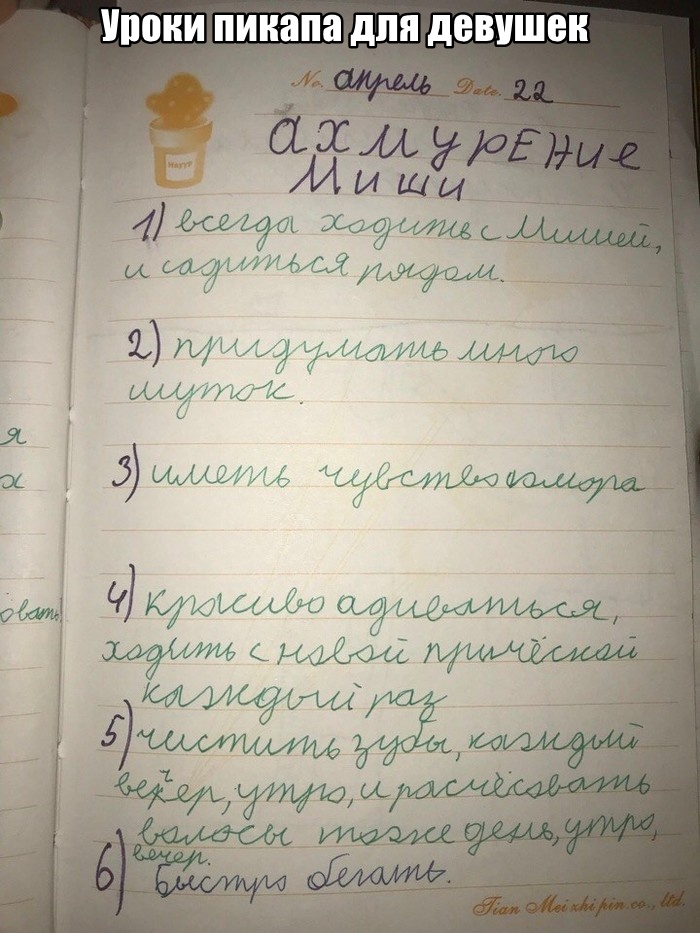 Уроки пикапа для девушек
No. апрель Date. 22
ахмурение
Миши
1) всегда ходить с Мишей,
и садиться рядом.
2) придумать много
шуток.
3) иметь чувство юмора
4) красиво адиваться,
ходить с новой причёской
каждый раз
5) чистить зубы, каждый
вечер, утро, и расчёсовать
волосы тоже день, утро,
вечер.
6) Быстро бегать.
я
х
овать
Tian Mei zhi pin.co., ltd.